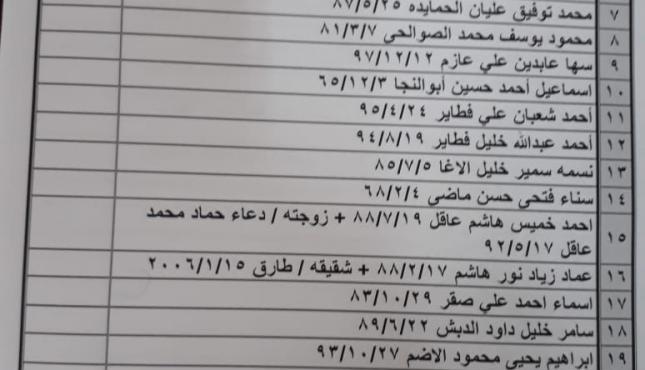 ٧ محمد توفيق عليان الحمايده ٨٧/٥/٢٥
٨ محمود يوسف محمد الصوالحي ٨١/٣/٧
٩ سها عابدين علي عازم ٩٧/١٢/١٢
١٠ اسماعيل أحمد حسين أبوالنجا ٦٥/١٢/٣
١١ أحمد شعبان علي فطاير ٩٥/٤/٢٤
١٢ أحمد عبدالله خليل فطاير ٩٤/٨/١٩
١٣ نسمه سمير خليل الاغا ٨٥/٧/٥
١٤ سناء فتحي حسن ماضي ٦٨/٢/٤
١٥ احمد خميس هاشم عاقل ٨٨/٧/١٩ + زوجته / دعاء حماد محمد
عاقل ٩٢/٥/١٧
١٦ عماد زياد نور هاشم ٨٨/٢/١٧ + شقيقه / طارق ٢٠٠٦/١/١٥
١٧ اسماء احمد علي صقر ٨٣/١٠/٢٩
١٨ سامر خليل داود الدبش ٨٩/٦/٢٢
١٩ ابراهيم يحيي محمود الاضم ٩٣/١٠/٢٧